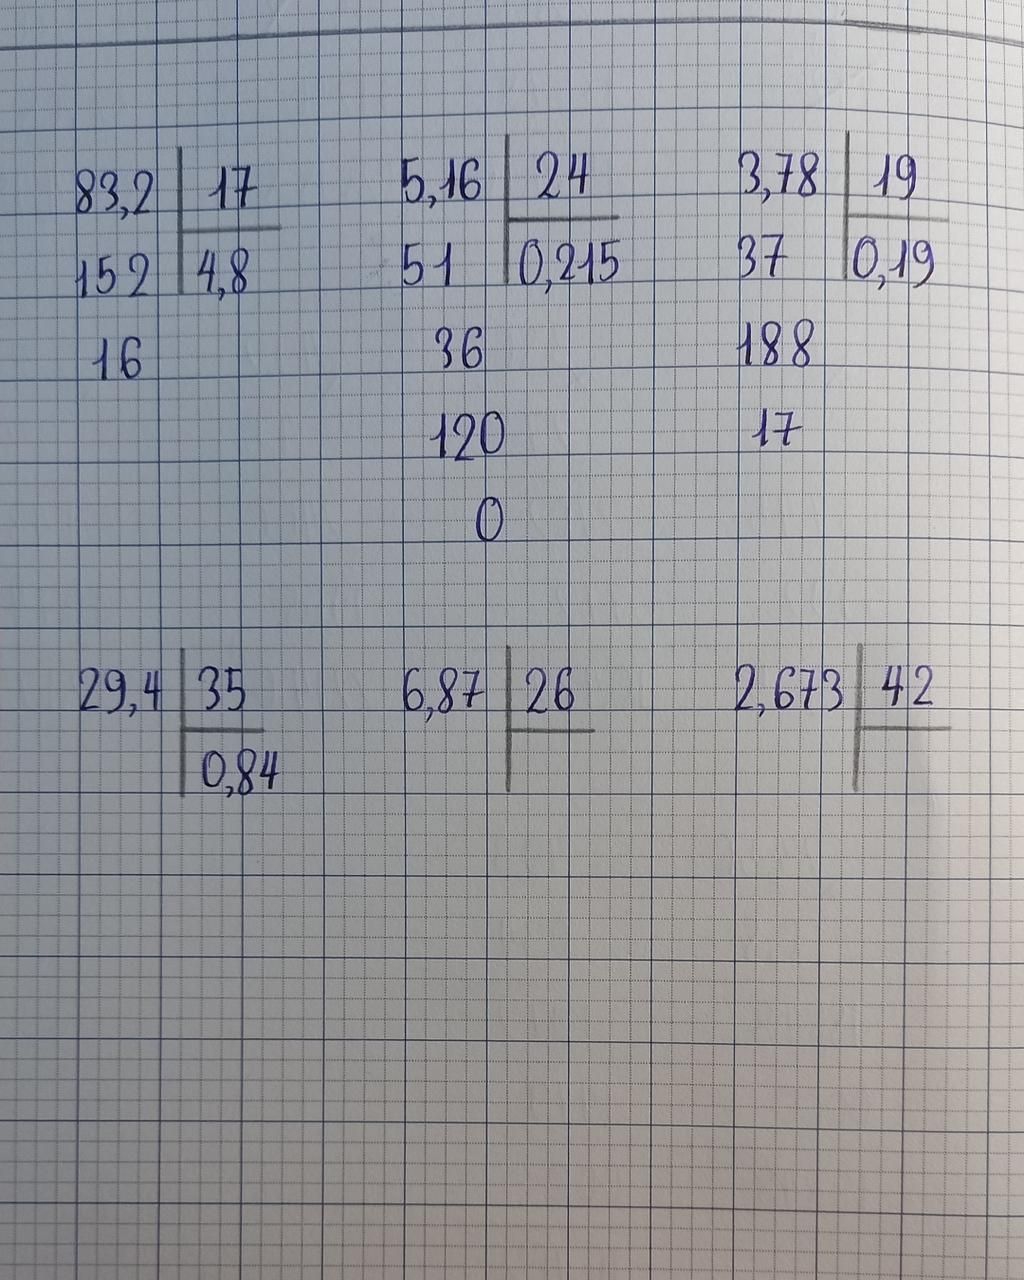 83,2 17 5,16 24 3,78 19
152 4,8 51 0,215 37 0,19
16 36 188
120 17
0
29,4 35 6,87 26 2,673 42
0,84